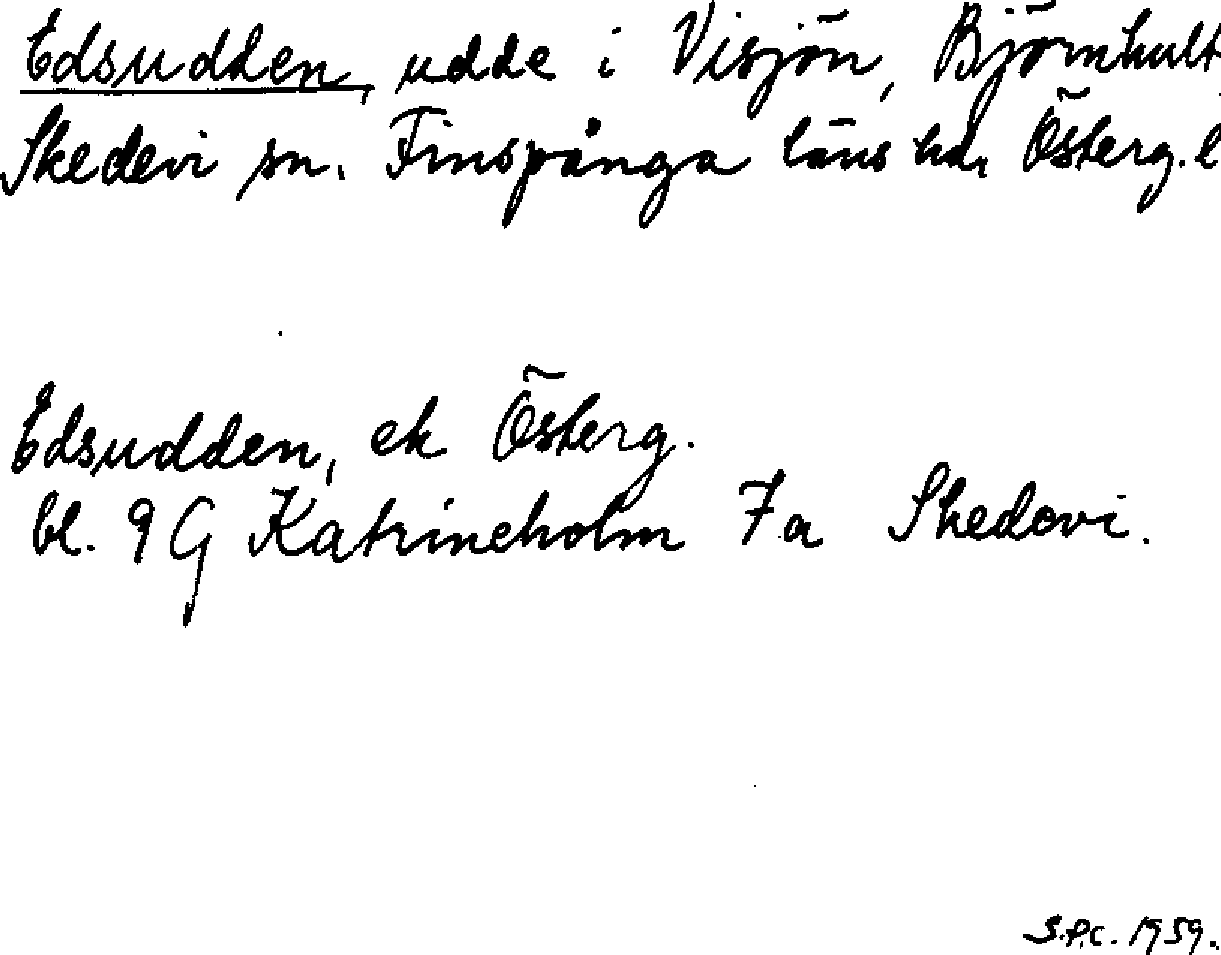 Edsudden, udde i Visjön, Björnhult
Skedevi sn. Finspånga läns hd, Österg. l
Edsudden, ek Österg.
bl. 9 G Katrineholm 7a Skedevi.
S.P.C. 1959.